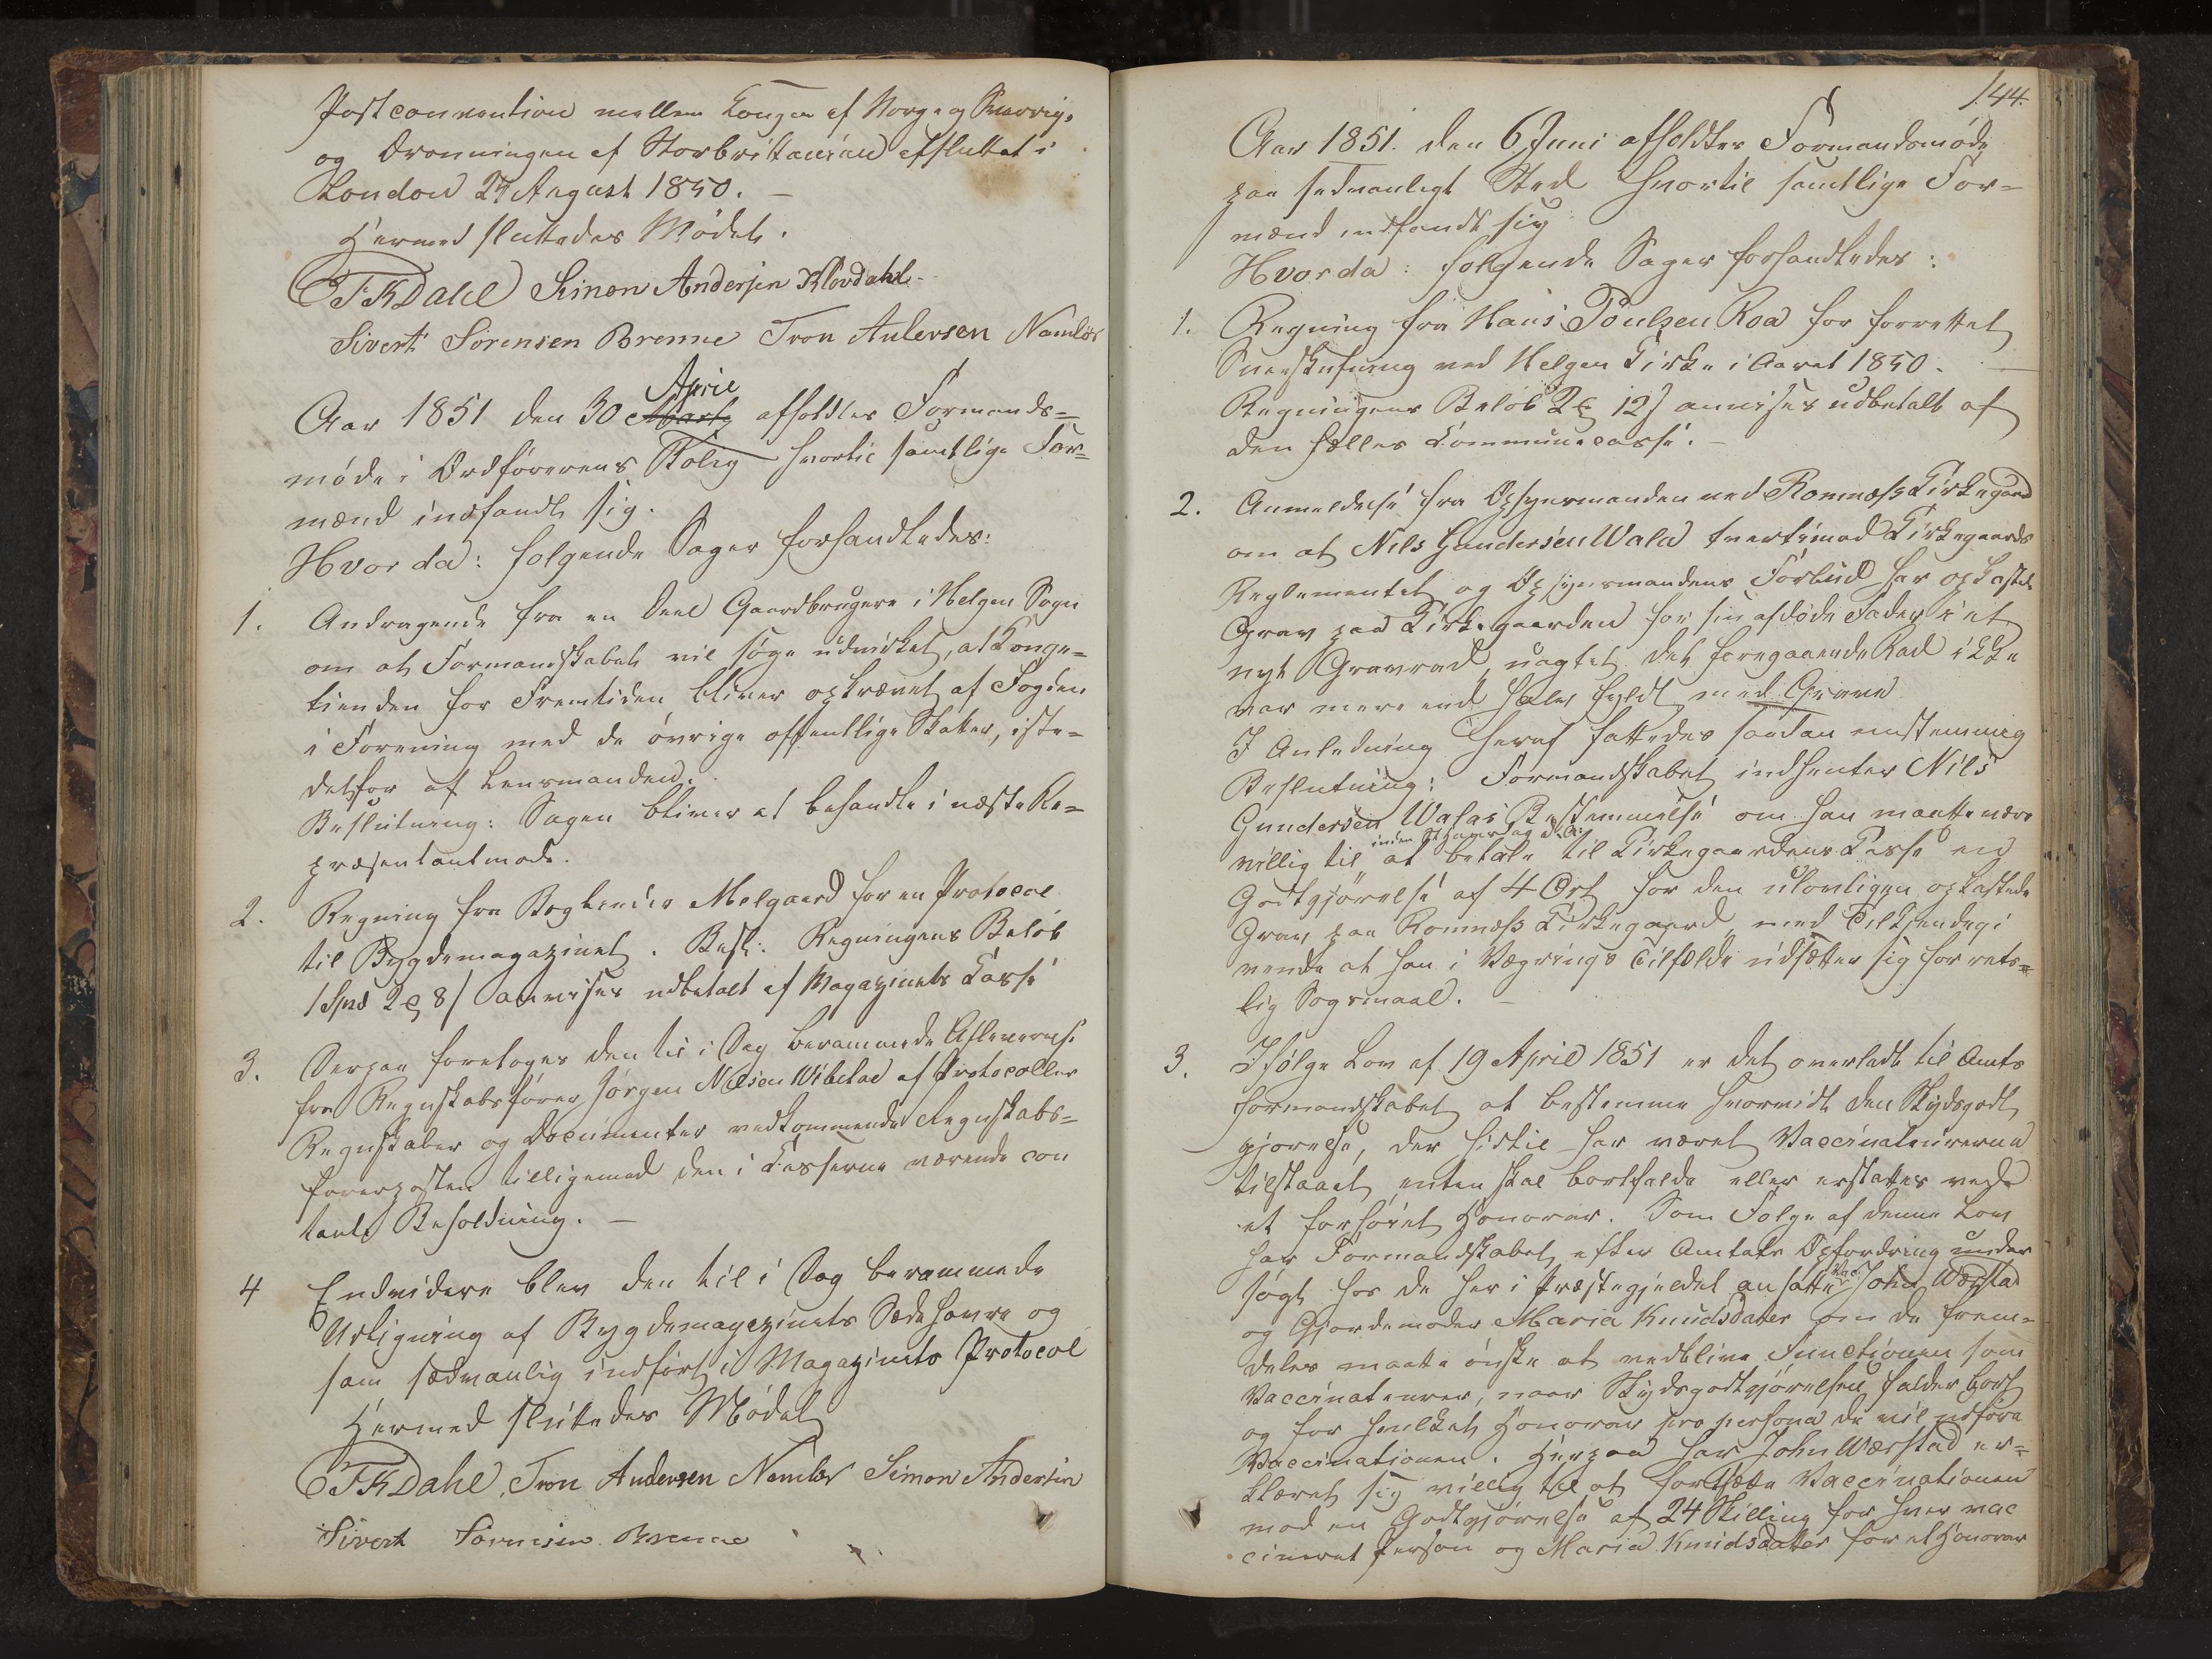 Postconvention mellem Kongen af Norge og Sverrig,
og Dronningen af Storbrittanien afsluttet i
London 24 August 1850. —
Hermed sluttedes Mødet.
TKDahl Simon Andersen Klovdahl
Sivert Sørensen Brenne Tron Andersen Namløs
April
Aar 1851 den 30 afholdtes Formands=
møde i Ordførerens Bolig hvortil samtlige For=
mænd indfandt sig.
Hvor da: følgende Sager forhandledes:
1. Andragende fra en Deel Gaardbrugere i Helgen Sogn
om at Formandskabet vil søge udvirket, at Konge=
tienden for Fremtiden bliver opkrævet af Fogden
i Forening med de øvrige offentlige Skatter, iste=
detfor af Lensmanden.
Beslutning: Sagen bliver at behandle i næste Re=
præsentantmøde.
2. Regning fra Bogbinder Melgaard for en Protocol
til Bygdemagazinet. Besl: Regningens Beløb
1 Spd 2 8 s anvises udbetalt af Magazinets Casse
3. Derpaa foretoges den til i Dag berammede Aflevering
fra Regnskabsfører Jørgen Nilsen Wibetoe af Protocoller
Regnskaber og Documenter vedkommende Regnskabs=
førerposten tilligemed den i Casserne værende con
tante Beholdning. —
4 Endvidere blev den til i Dag berammede
Udligning af Bygdemagazinets Sædehavre og
som sædvanlig indført i Magazinets Protocol
Hermed sluttedes Mødet
TKDahl, Tron Andersen Namløs Simon Andersen
Sivert Sørensen Brenne
144.
Aar 1851. den 6 Juni afholdtes Formandsmøde
paa sedvanligt Sted hvortil samtlige For=
mænd indfandt sig
Hvorda: følgende Sager forhandledes:
1. Regning fra Hans Poulsen Roa for forrettet
Sneeskufning ved Helgen Kirke i Aaret 1850. —
Regningens Beløb 2 12 s anvises udbetalt af
den fælles Communecasse. —
2. Anmeldelse fra Opsynsmanden ved Romnæss Kirkegaard
om at Nils Gundersen Wala tvertimod Kirkegaards
Reglementet og Opsynsmandens Forbud har opkastet
Grav paa Kirkegaarden for sin afdøde Fader i et
nyt Gravrad, uagtet det foregaaende Rad ikke
var mere end halv fyldt med Grave
I Anledning heraf fattedes saadan eenstemmig
Beslutning: Formandskabet indhenter Nils
Gundersen Walas Bestemmelse om han maatte være
inden
villig til at betale til Kirkegaardens Casse en
Godtgjørelse af 4 Ort for den ulovligen opkastede
Grav paa Romnæss Kirkegaard, med Tilkjendegi
vende at han i Vægrings Tilfælde udsætter sig for rets=
lig Søgsmaal. —
3. Ifølge Lov af 19 April 1851 er det overladt til Amts
formandskabet at bestemme hvorvidt den Skydsgodt
gjørelse, der hidtil har været Vaccinateurerne
tilstaaet enten skal bortfalde eller erstattes ved
et forhøiet Honorar. Som Følge af denne Lov
har Formandskabet efter Amtets Opfordring under
Vac:
søgt hos de her i Præstegjeldet ansatte John Wærstad
og Gjordemoder Maria Knudsdater om de frem=
deles maatte ønske at vedblive Functionen som
Vaccinateurer, naar Skydsgodtgjørelsen falder bort
og for hvilket Honorar pro persona de vil udføre
Vaccinationen. Herpaa har John Wærstad er=
klæret sig villig til at fortsætte Vaccinationen
mod en Godtgjørelse af 24 Skilling for hver vac
cineret Person og Maria Knudsdater for et Honorar